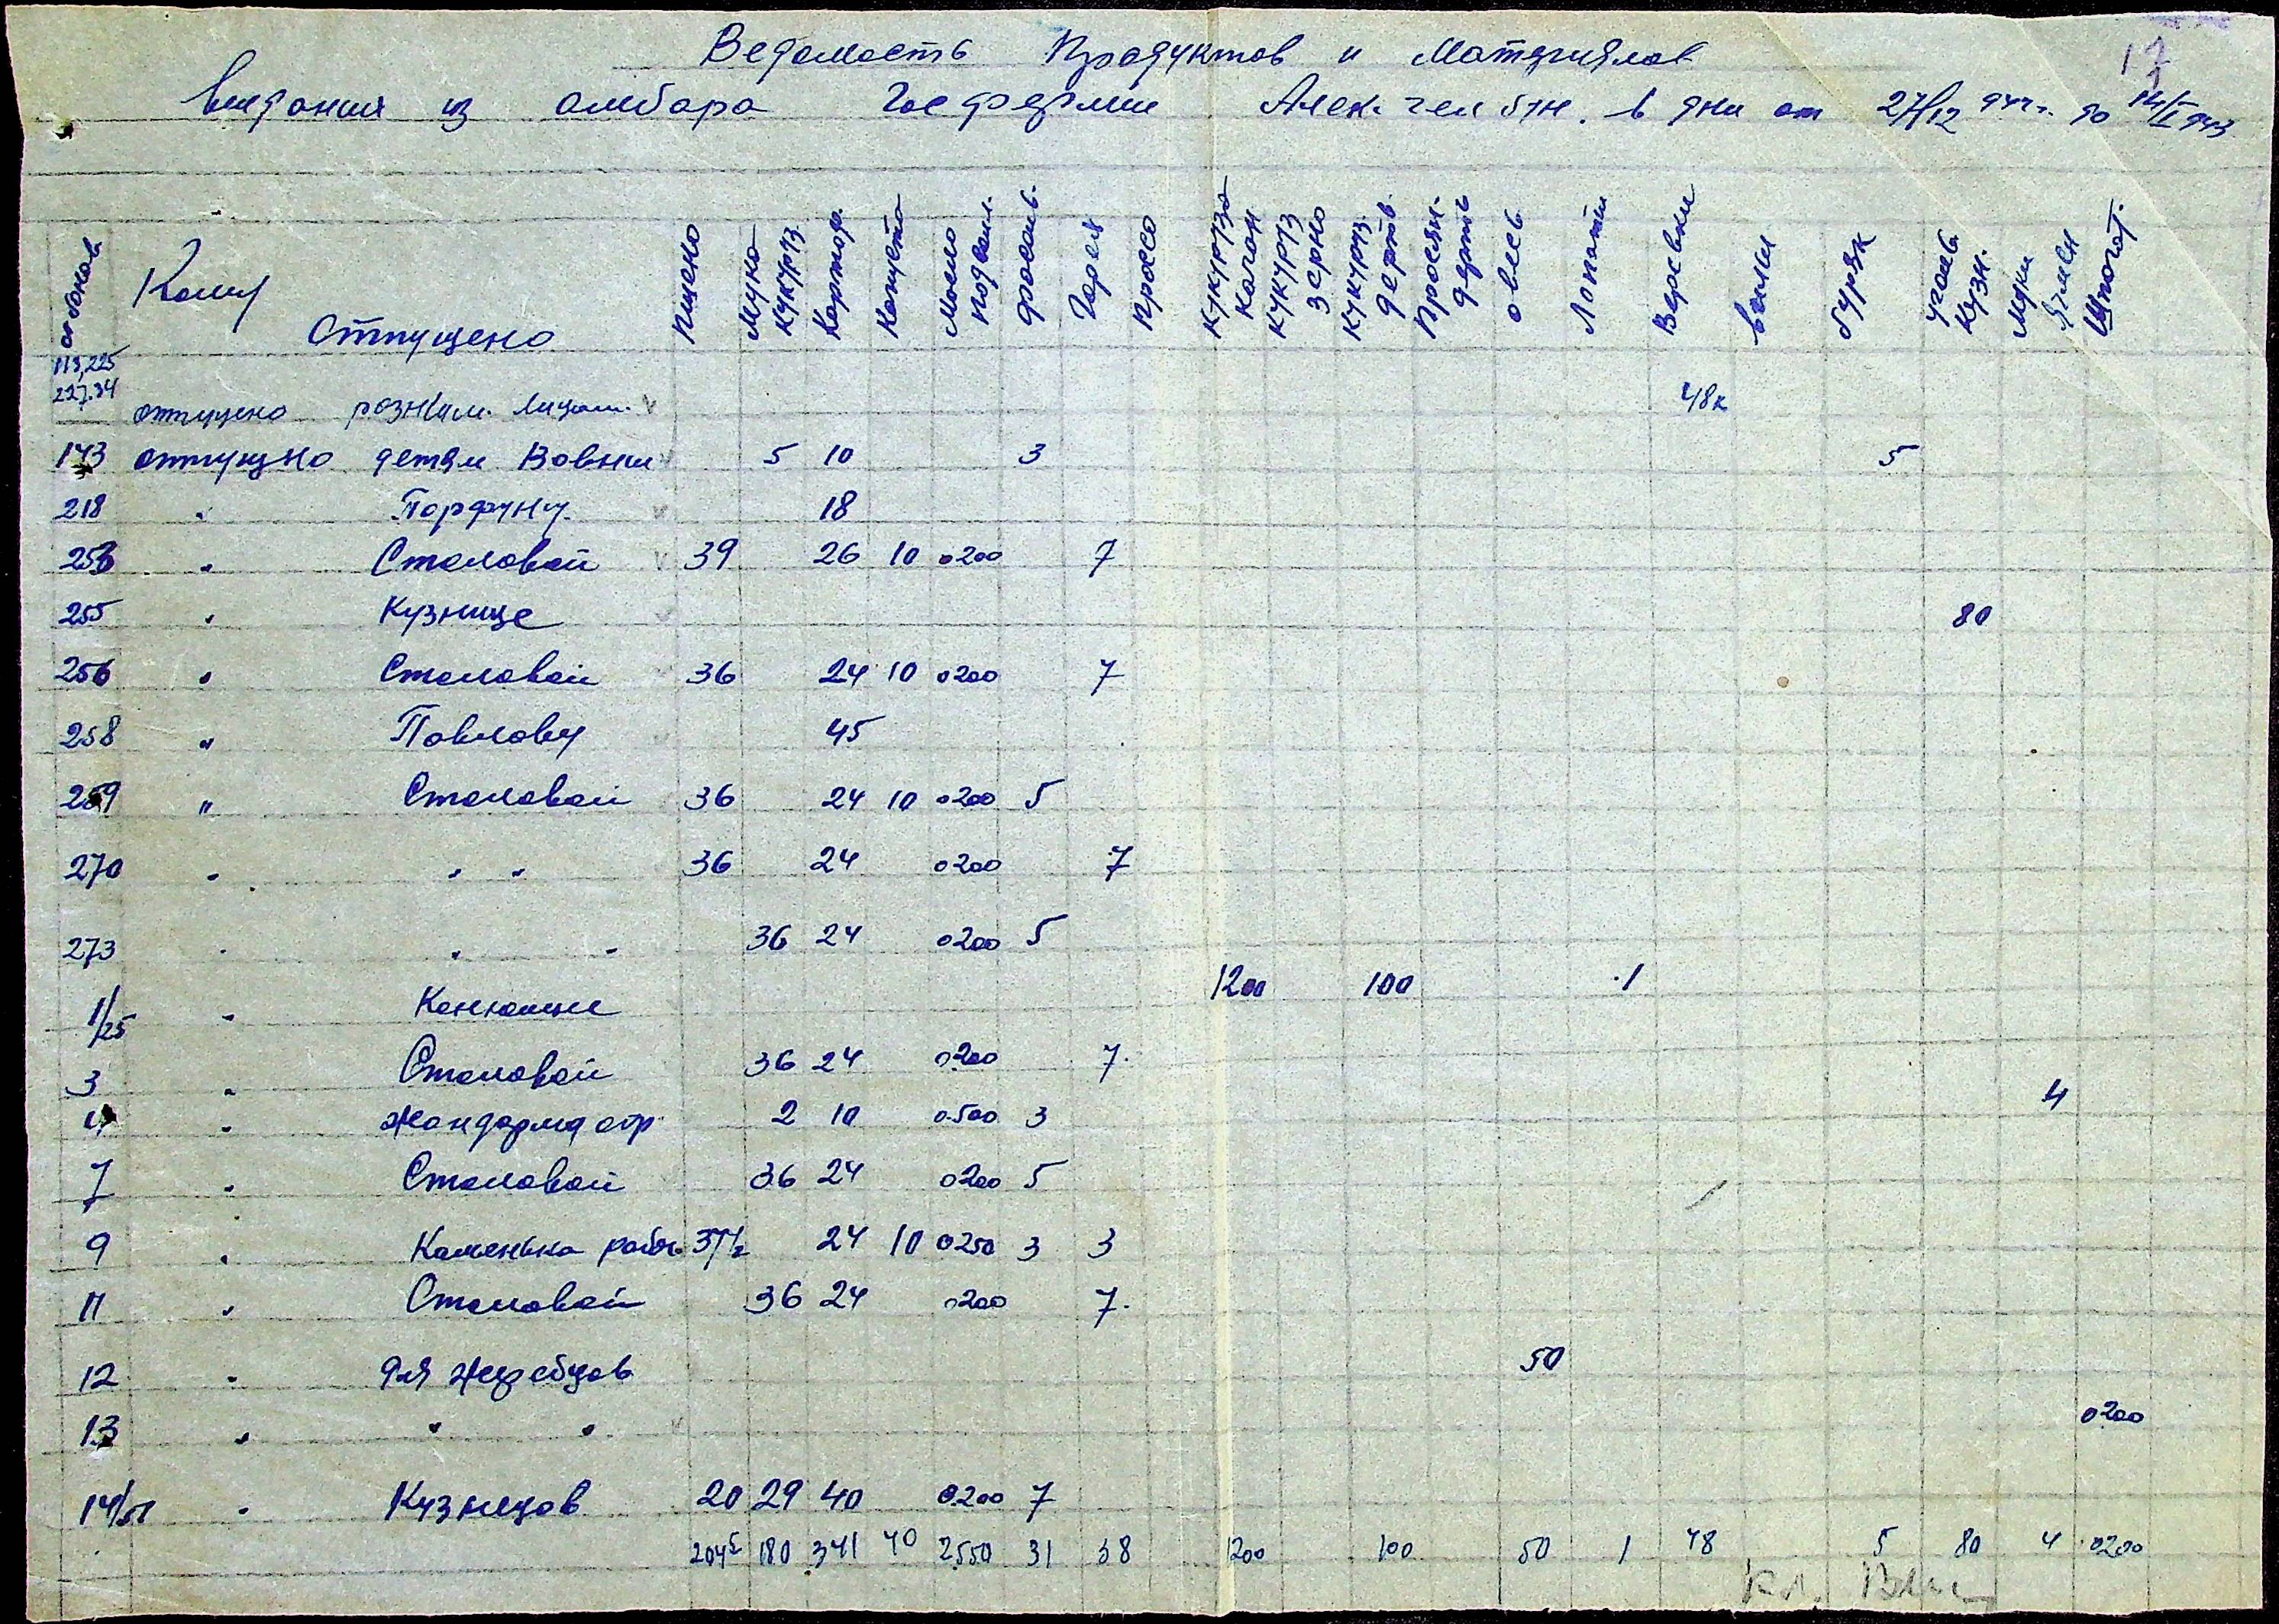 17
Ведомость Продуктов и Материялов
выдания из амбара Госфермы Алек. в дни от 27/12 942 г. до 14/I 943
Кому отпущено
Пшено
Мука кукуруз.
Картоф.
Капуста
Масло подсолн.
Фасоль
Горох
Просо
Кукуруза качан
Кукуруз зерно
Кукуруз. дерть
Просян. дерть
овесь
Лопаты
Веровки
вилы
буряк
уголь Кузн.
Муки Ячмен
Шпогат.
113,225
227.34 отпущено разным. лицам. 48к
143 отпущено детям Вовны 5 10 3 5
218 " Парфуну 18
253 " Столовой 39 26 10 0200 7
255 " Кузнице 80
256 " Столовой 36 24 10 0200 7
258 " Павлову 45
259 " Столовой 36 24 10 0200 5
270 " " " 36 24 0200 7
273 " " " 36 24 0200 5
1/25 " Конюшни 1200 100 1
3 " Столовой 36 24 0200 7.
4 " Жандармд отр. 2 10 0.500 3 4
7 " Столовой 36 24 0200 5
9 " Каменька рабоч. 37½ 24 10 0250 3 3
11 " Столовой 36 24 0200 7.
12 " для жеребцов 50
13 " " " 0200
14/51 " Кузнецов 20 29 40 0200 7
204⁵ 180 341 40 2550 31 38 1200 100 50 1 48 5 80 4 0200